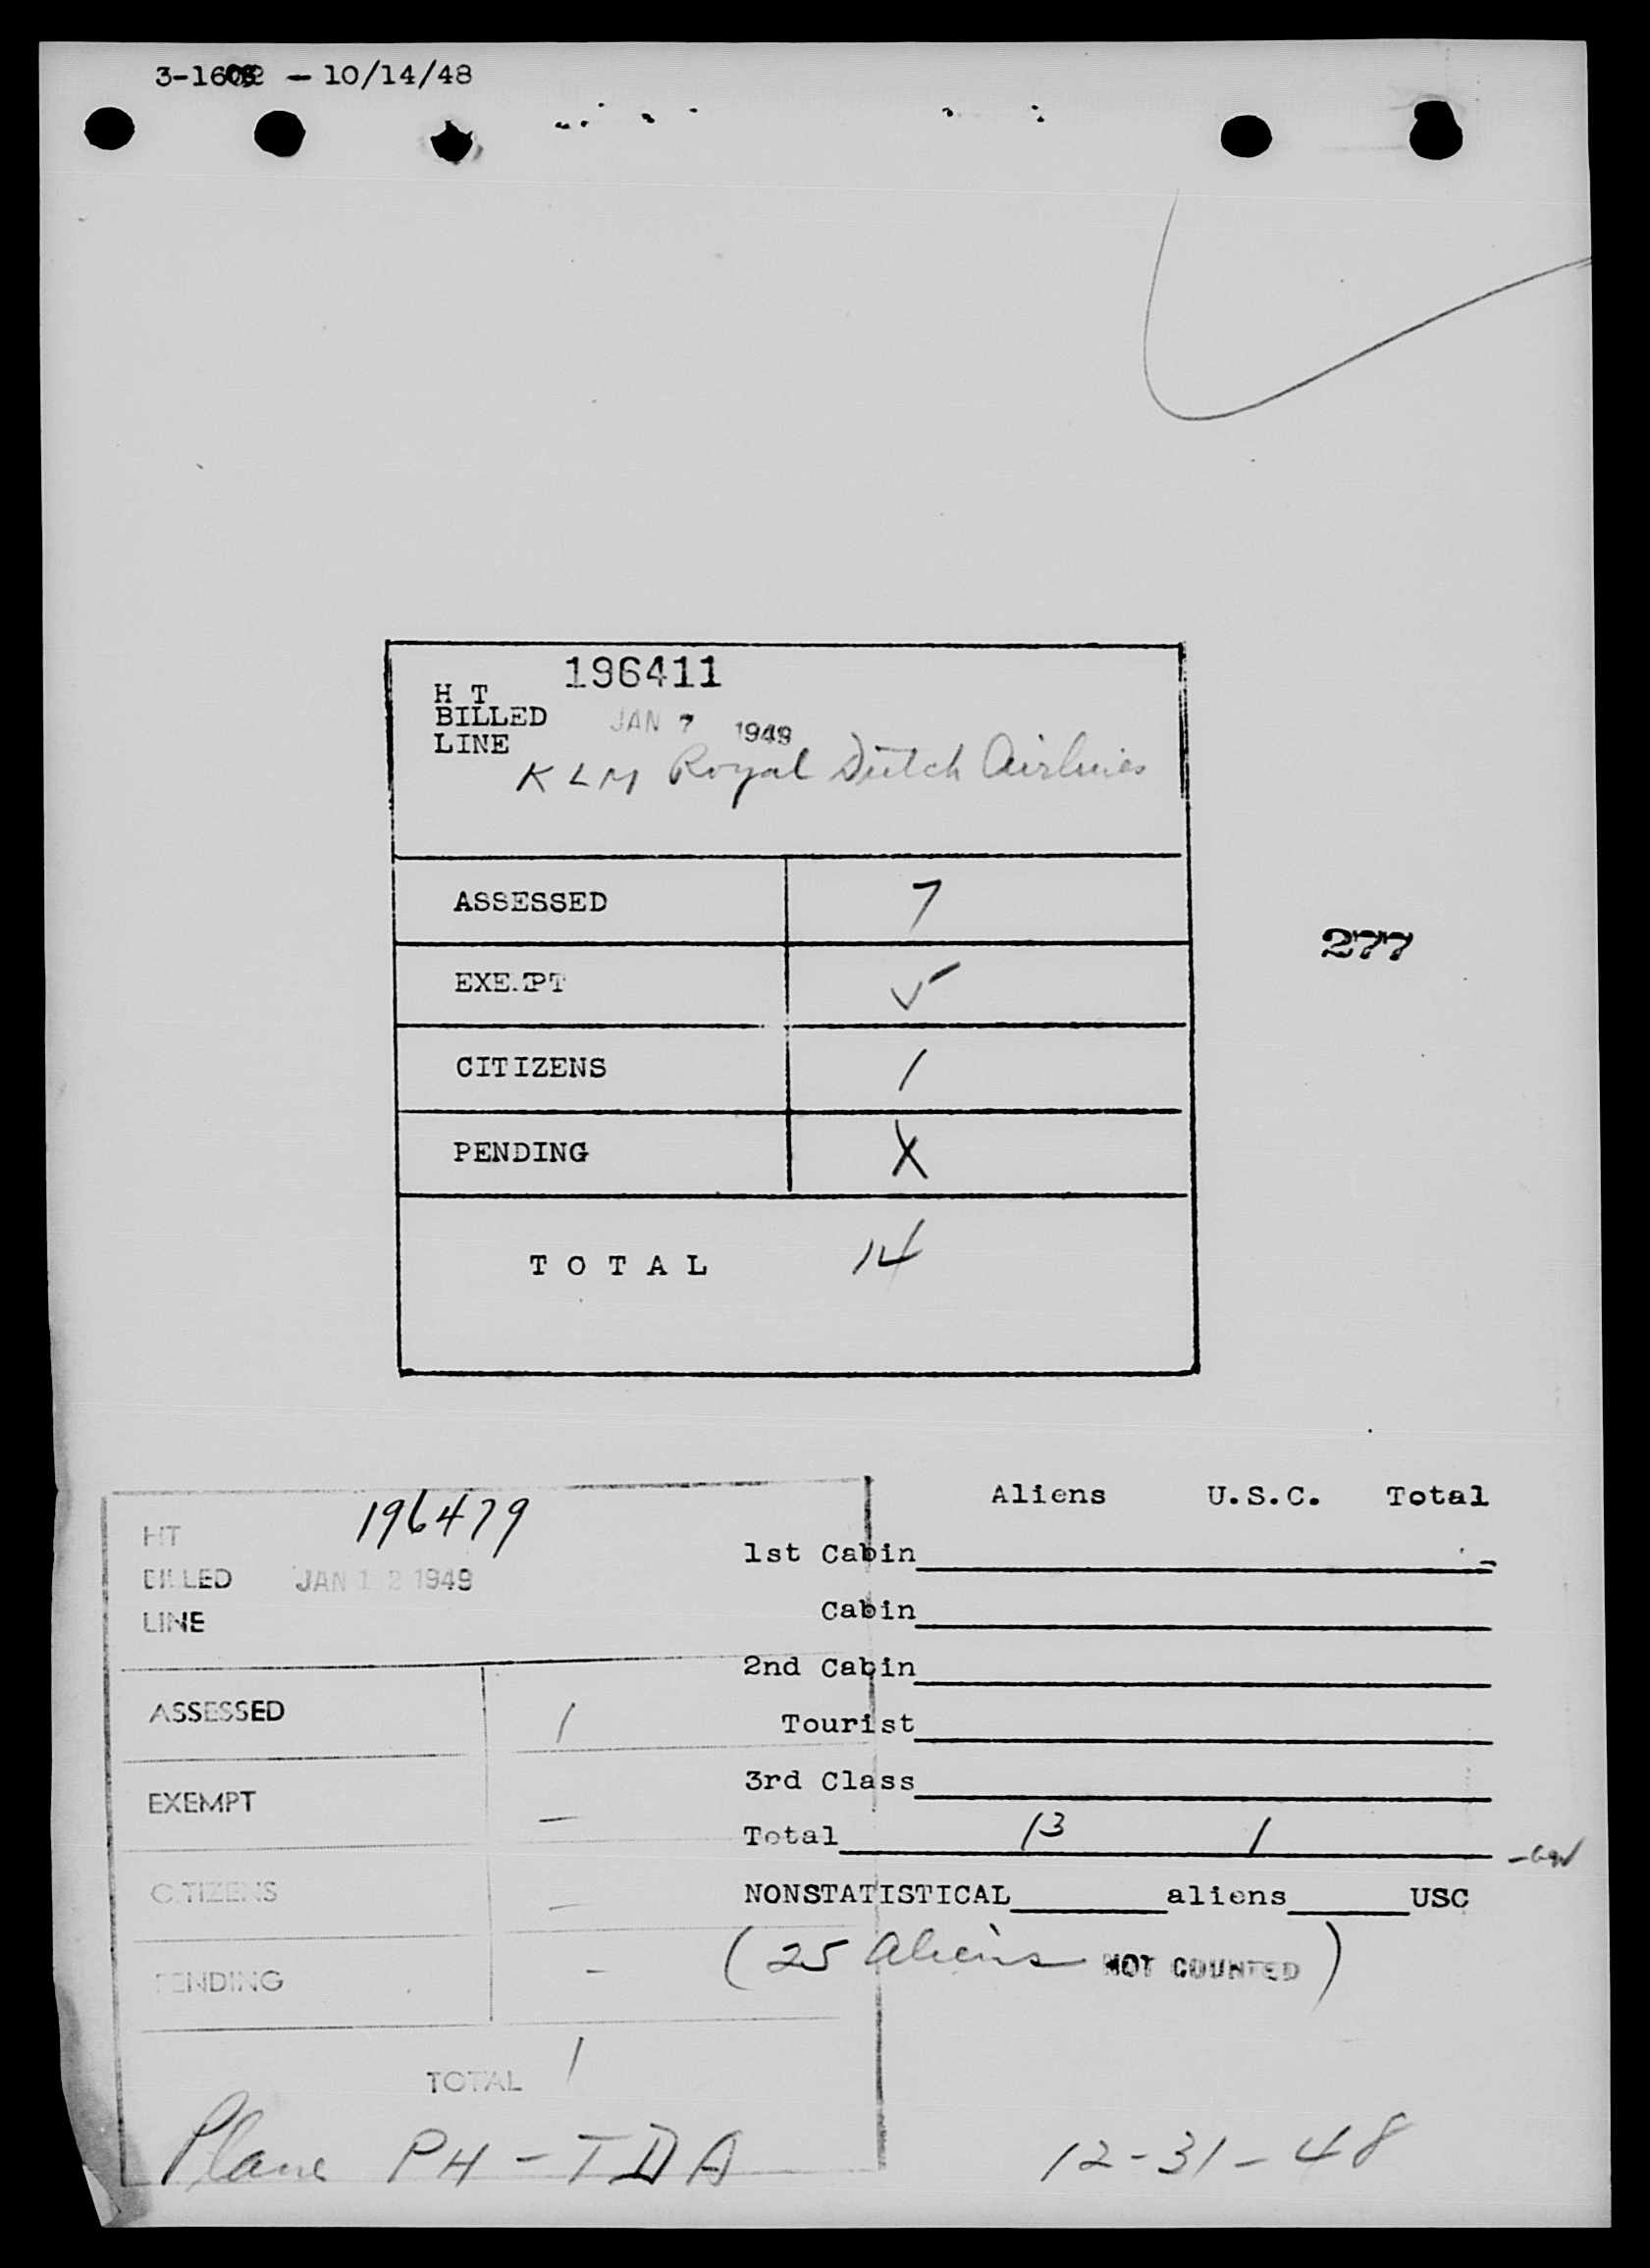 - 10/14/48
196411
H T
BILLED JAN 7 1949
LINE
KLM Royal Dutch Airlines
ASSESSED 7
EXEMPT
CITIZENS 1
PENDING X
TOTAL 14
277
196479
HT
BILLED JAN 12 1949
LINE
ASSESSED 1
EXEMPT -
CITIZENS -
PENDING -
TOTAL 1
Aliens U.S.C. Total
1st Cabin
Cabin
2nd Cabin
Tourist
3rd Class
Total 13 1
NONSTATISTICAL aliens USC
(25 Aliens NOT COUNTED)
Plane PH-TDA 12-31-48